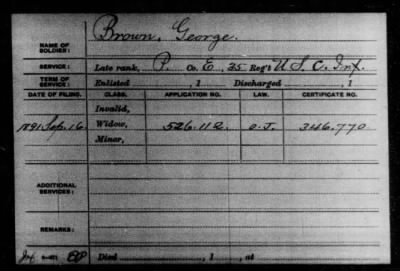 Brown, George.
NAME OF SOLDIER:
SERVICE: Late rank, P. Co. E, 35 Reg't U.S.C. Inf.
TERM OF SERVICE: Enlisted , 1 Discharged , 1
DATE OF FILING. CLASS. APPLICATION NO. LAW. CERTIFICATE NO.
Invalid,
1891 Sep. 16. Widow, 526.112. O.L. 346.770
Minor,
ADDITIONAL SERVICES:
REMARKS:
Died , 1 , at